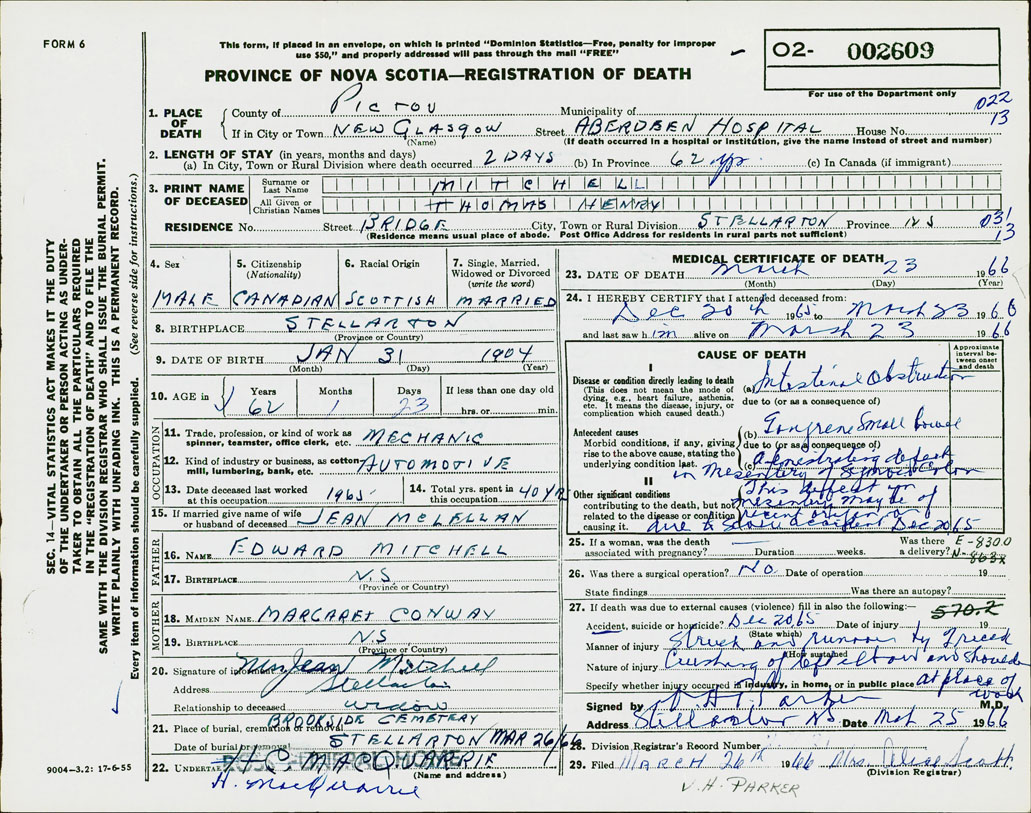 FORM 6
This form, if placed in an envelope, on which is printed "Dominion Statistics—Free, penalty for improper
use $50," and properly addressed will pass through the mail "FREE"
PROVINCE OF NOVA SCOTIA—REGISTRATION OF DEATH
O2- 002609
For use of the Department only
022
13
SEC. 14—VITAL STATISTICS ACT MAKES IT THE DUTY
OF THE UNDERTAKER OR PERSON ACTING AS UNDER-
TAKER TO OBTAIN ALL THE PARTICULARS REQUIRED
IN THE "REGISTRATION OF DEATH" AND TO FILE THE
SAME WITH THE DIVISION REGISTRAR WHO SHALL ISSUE THE BURIAL PERMIT.
WRITE PLAINLY WITH UNFADING INK. THIS IS A PERMANENT RECORD.
Every item of information should be carefully supplied. (See reverse side for instructions.)
9004-3.2: 17-6-55
1. PLACE OF DEATH
County of PICTOU Municipality of
If in City or Town NEW GLASGOW Street ABERDEEN HOSPITAL House No.
(Name) (If death occurred in a hospital or institution, give the name instead of street and number)
2. LENGTH OF STAY (in years, months and days)
(a) In City, Town or Rural Division where death occurred 2 DAYS (b) In Province 62 yrs. (c) In Canada (if immigrant)
3. PRINT NAME OF DECEASED
Surname or Last Name MITCHELL
All Given or Christian Names THOMAS HENRY
RESIDENCE No. Street BRIDGE City, Town or Rural Division STELLARTON Province NS
031
13
(Residence means usual place of abode. Post Office Address for residents in rural parts not sufficient)
4. Sex
MALE
5. Citizenship (Nationality)
CANADIAN
6. Racial Origin
SCOTTISH
7. Single, Married, Widowed or Divorced (write the word)
MARRIED
8. BIRTHPLACE STELLARTON
(Province or Country)
9. DATE OF BIRTH JAN 31 1904
(Month) (Day) (Year)
10. AGE in Years Months Days If less than one day old
62 1 23 hrs. or min.
OCCUPATION
11. Trade, profession, or kind of work as
spinner, teamster, office clerk, etc. MECHANIC
12. Kind of industry or business, as cotton
mill, lumbering, bank, etc. AUTOMOTIVE
13. Date deceased last worked
at this occupation 1965
14. Total yrs. spent in
this occupation 40 YR
15. If married give name of wife
or husband of deceased JEAN MCLELLAN
FATHER
16. NAME EDWARD MITCHELL
17. BIRTHPLACE N.S.
(Province or Country)
MOTHER
18. MAIDEN NAME MARGARET CONWAY
19. BIRTHPLACE NS
(Province or Country)
20. Signature of informant Mrs Jean Mitchell
Address Stellarton
Relationship to deceased widow
21. Place of burial, cremation or removal BROOKSIDE CEMETERY
STELLARTON
Date of burial or removal MAR 26/66
22. UNDERTAKER H C MACQUARRIE
(Name and address)
H. MacQuarrie
MEDICAL CERTIFICATE OF DEATH
23. DATE OF DEATH March 23 1966
(Month) (Day) (Year)
24. I HEREBY CERTIFY that I attended deceased from:
Dec 20th 1965 to March 23 1966
and last saw him alive on March 23 1966
CAUSE OF DEATH
Approximate interval between onset and death
I
Disease or condition directly leading to death
(This does not mean the mode of
dying, e.g., heart failure, asthenia,
etc. It means the disease, injury, or
complication which caused death.)
(a) Intestinal Obstruction
due to (or as a consequence of)
Antecedent causes
Morbid conditions, if any, giving
rise to the above cause, stating the
underlying condition last.
(b) Gangrene Small bowel
due to (or as a consequence of)
(c) A penetrating defect
in Mesentery of Sigmoid Colon
II
Other significant conditions
contributing to the death, but not
related to the disease or condition
causing it.
This defect in
mesentery may be of
due to accident Dec 20 65
25. If a woman, was the death
associated with pregnancy? Duration weeks. Was there a delivery?
E-8300
N-863x
26. Was there a surgical operation? No Date of operation 19
State findings Was there an autopsy?
27. If death was due to external causes (violence) fill in also the following:—
570.2
Accident, suicide or homicide? Dec 20 65 Date of injury 19
(State which)
Manner of injury Struck and runover by
(How sustained)
Nature of injury Crushing of left elbow and shoulder
Specify whether injury occurred in industry, in home, or in public place at place of
work
Signed by Parker M.D.
Address Stellarton NS Date Mch 25 1966
28. Division Registrar's Record Number
29. Filed MARCH 26th 1966 Mrs. Scott
(Division Registrar)
V. H. PARKER